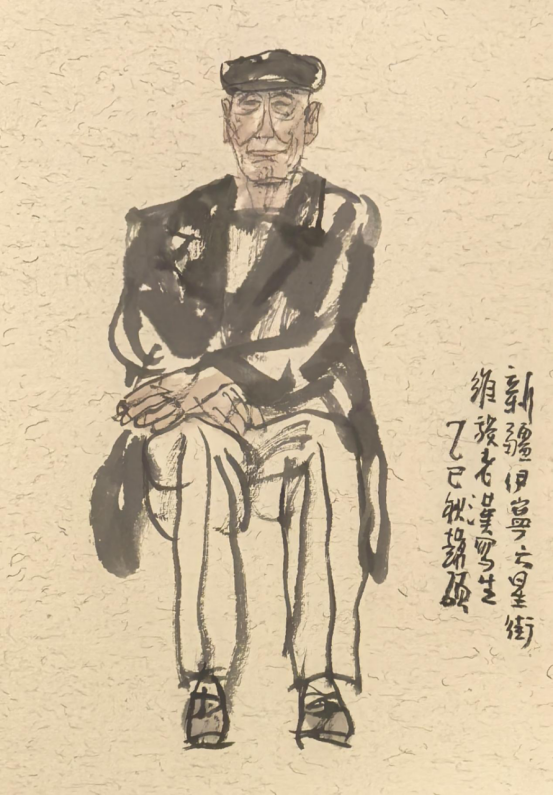 新疆伊寧六星街
維族老漢寫生
乙巳秋 碩